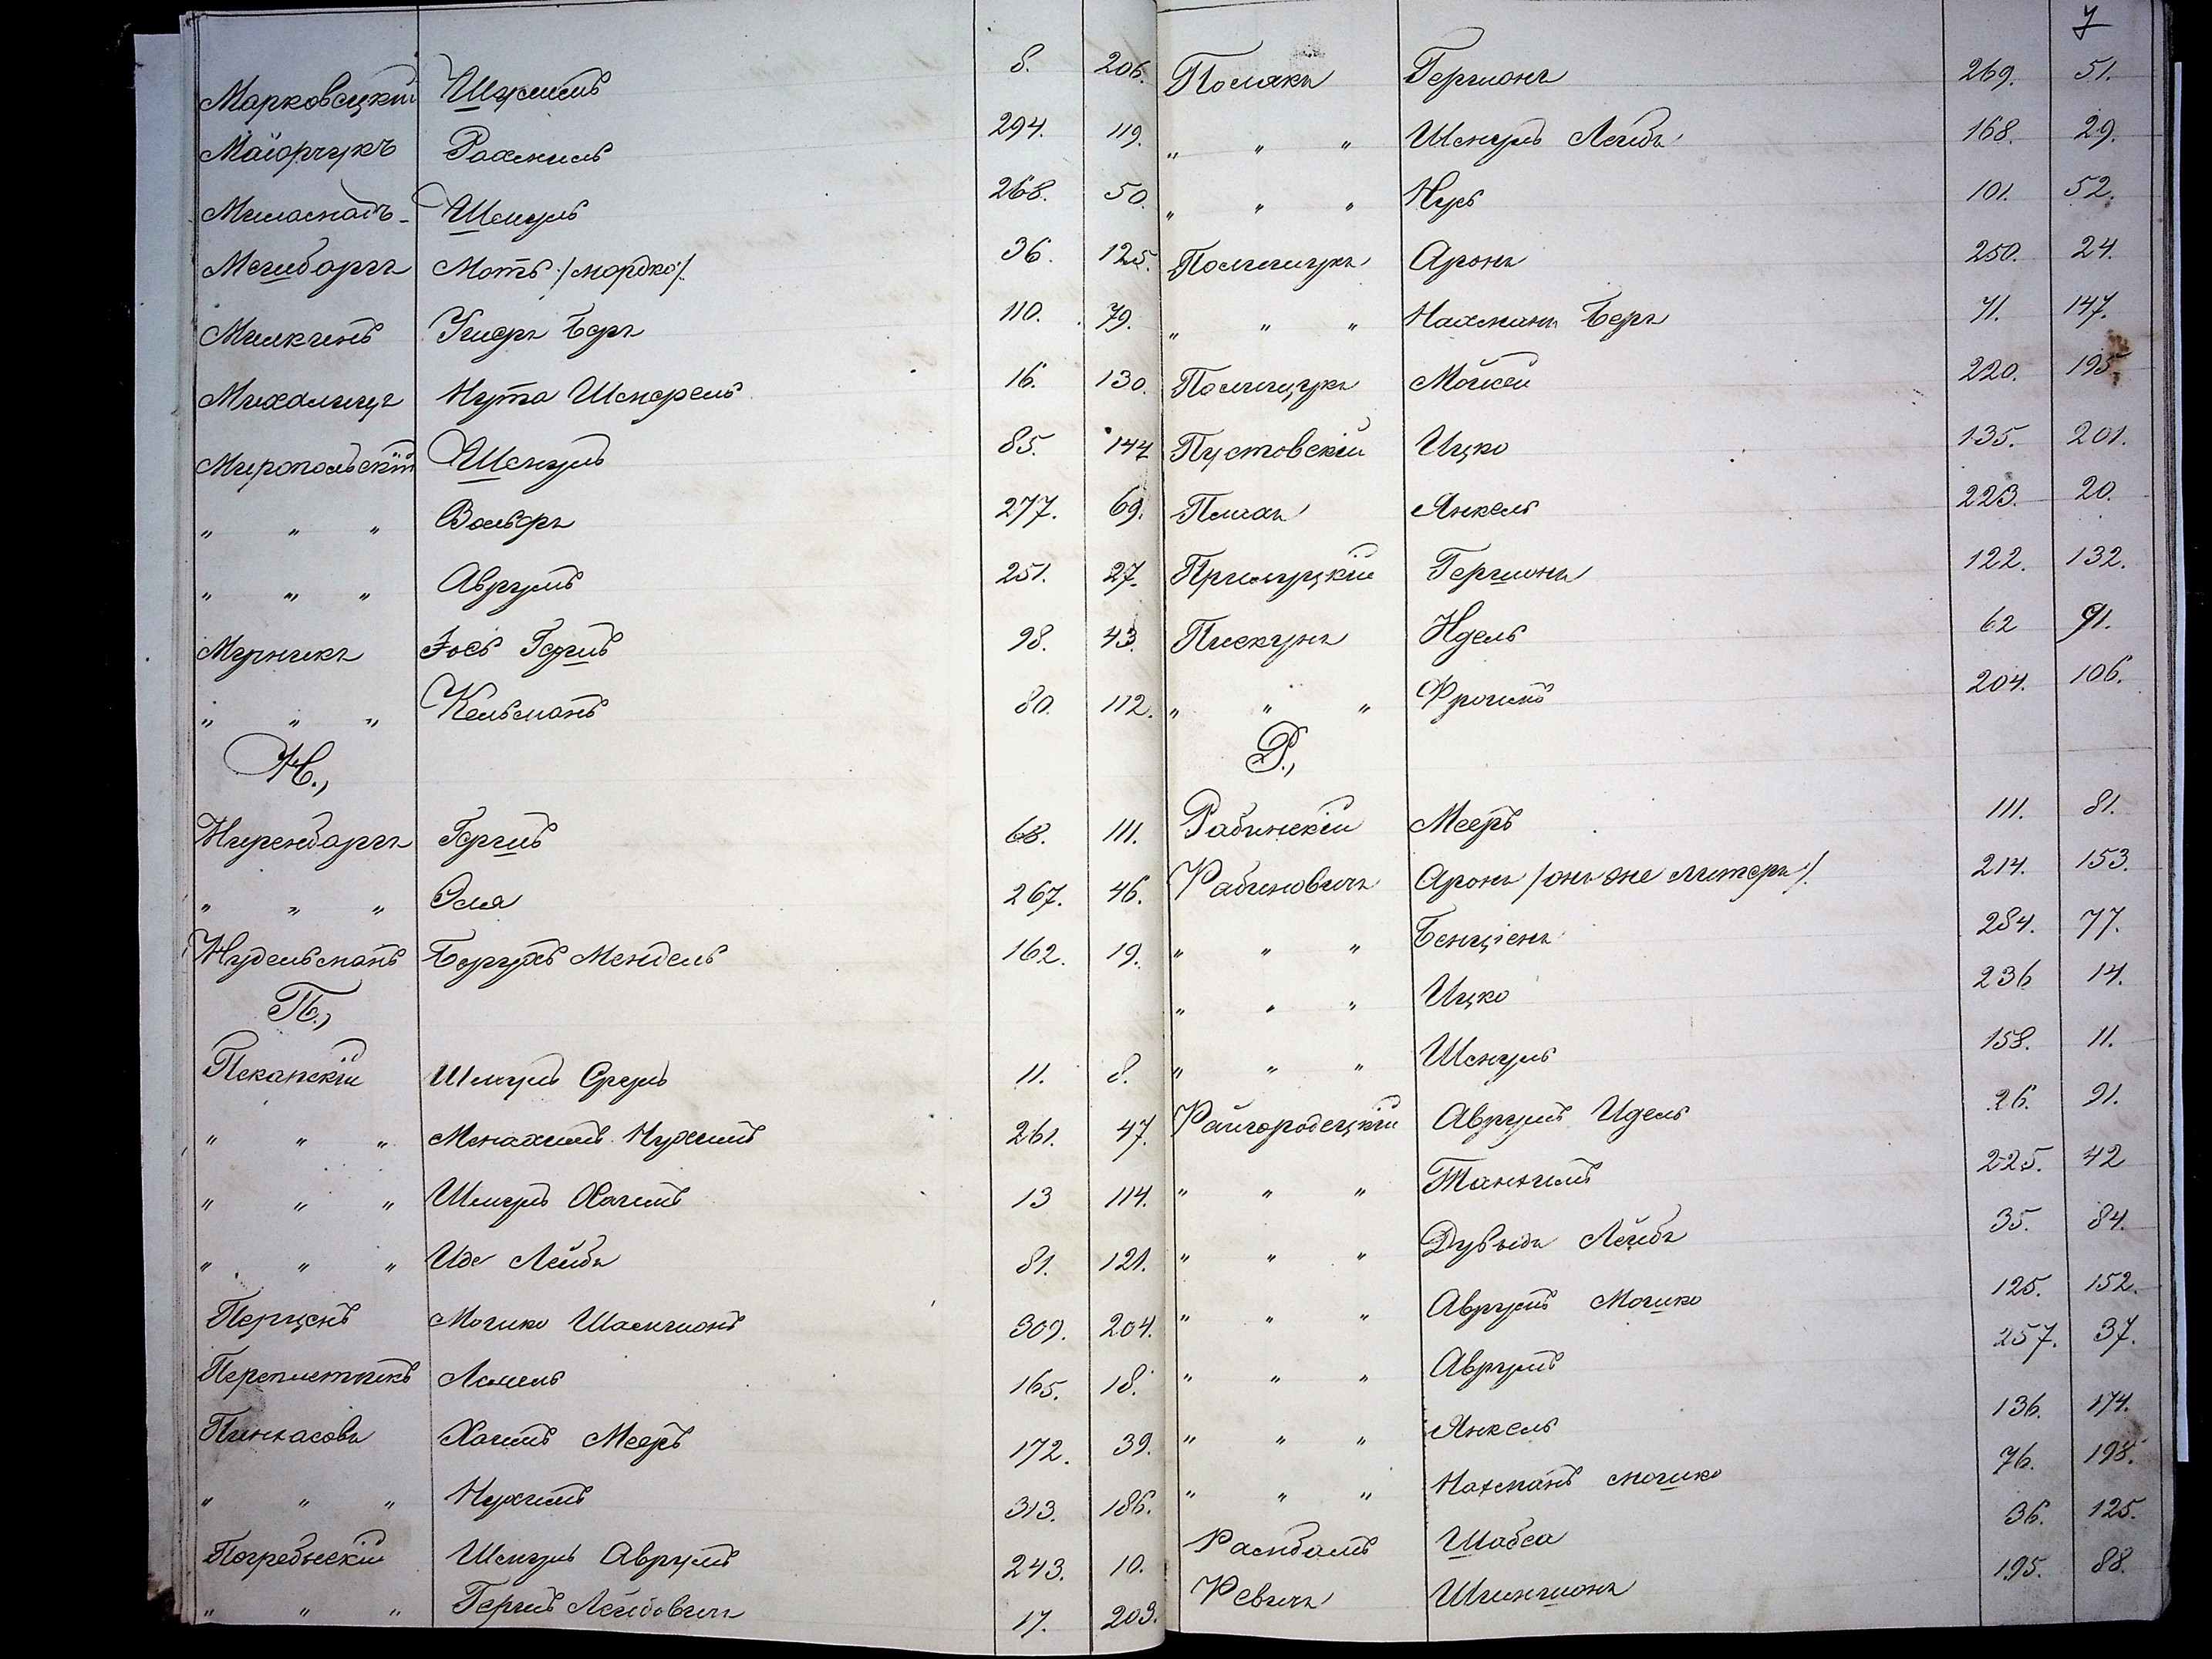 Марковецкій Шулимъ 8. 206.
Маіорчукъ Рахмиль 294. 119.
Милославъ Шмуль 268. 50.
Мейбаргъ Моть /мордко/. 36. 125.
Милкинъ Ушеръ Беръ 110. 79.
Михалищъ Нута Шмерель 16. 130.
Миропольскій Шмуль 85. 144
" " " Вольфъ 277. 69.
" " " Аврумъ 251. 27.
Мурникъ Іось Гершъ 98. 43.
" " " Кельманъ 80. 112.
Н.,
Ниренбаргъ Гершъ 68. 111.
" " " Эля 267. 46.
Нудельманъ Борухъ Мендель 162. 19.
П.,
Пеканскій Шмуль Сруль 11. 8.
" " " Менахимъ Нухимъ 261. 47.
" " " Шмуль Хаимъ 13 114.
" " " Иде Лейбъ 81. 121.
Перценъ Мошко Шамшонъ 309. 204.
Переплетникъ Лемель 165. 18.
Пинхасовъ Хаимъ Меръ 172. 39.
" " " Нухимъ 313. 186.
Погребнскій Шмуль Аврумъ 243. 10.
" " " Гершъ Лейбовичъ 17. 203.
7
Полякъ Гершонъ 269. 51.
" " " Шмуль Лейбъ 168. 29.
" " " Нусь 101. 52.
Полищукъ Аронъ 250. 24.
" " " Нахманъ Беръ 71. 147.
Полищукъ Мошко 220. 195.
Пустовскій Ицко 135. 201.
Плиачъ Янкель 223. 20.
Прилуцкій Гершонъ 122. 132.
Пискунъ Идель 62 91.
" " " Фроимъ 204. 106.
Р.,
Рабинскій Мееръ 111. 81.
Рабиновичъ Аронъ /онъ же литеръ/. 214. 153.
" " " Бенціонъ 284. 77.
" " " Ицко 236 14.
" " " Шмуль 158. 11.
Райгородецкій Аврумъ Идель 26. 91.
" " " Танхимъ 225. 42
" " " Дувыдъ Лейбъ 35. 84.
" " " Аврумъ Мошко 125. 152.
" " " Аврумъ 257. 37.
" " " Янкель 136. 174.
" " " Нахманъ мошко 76. 198.
Рамбамъ Шабса 36. 125.
Ревичъ Шимшонъ 195. 88.